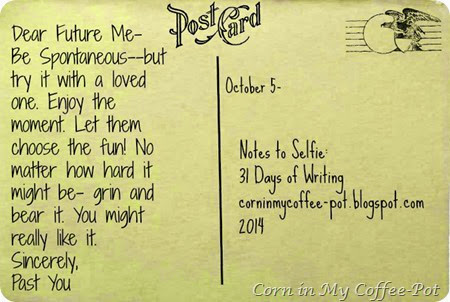 Post Card
Dear Future Me-
Be Spontaneous--but
try it with a loved
one. Enjoy the
moment. Let them
choose the fun! No
matter how hard it
might be- grin and
bear it. You might
really like it.
Sincerely,
Past You
October 5-
Notes to Selfie:
31 Days of Writing
corninmycoffee-pot.blogspot.com
2014
Corn in My Coffee-Pot